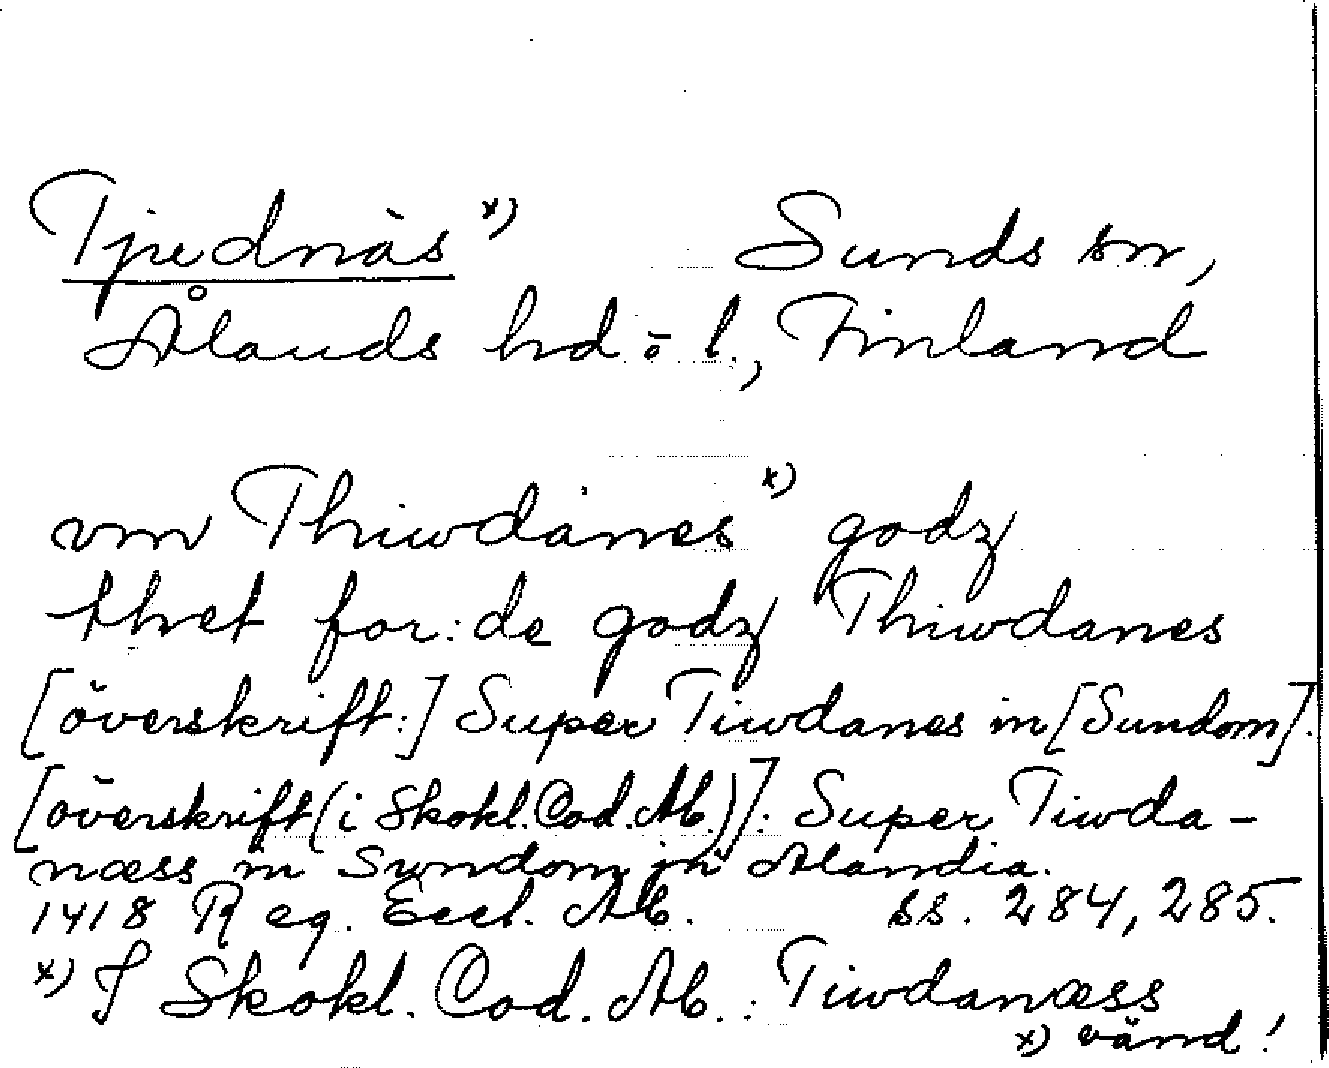 Tjudnäs x) Sunds sn,
Ålands hd o l., Finland
vm Thiwdanes x) godz
thet for:de godz Thiwdanes
[överskrift:] Super Tiwdanes in [Sundom].
[överskrift (i Skokl. Cod. Ab.)]: Super Tiwda-
næss in Swndom jn Alandia.
1418 Reg. Eccl. Ab. ss. 284, 285.
x) I Skokl. Cod. Ab.: Tiwdanæss
x) vänd!